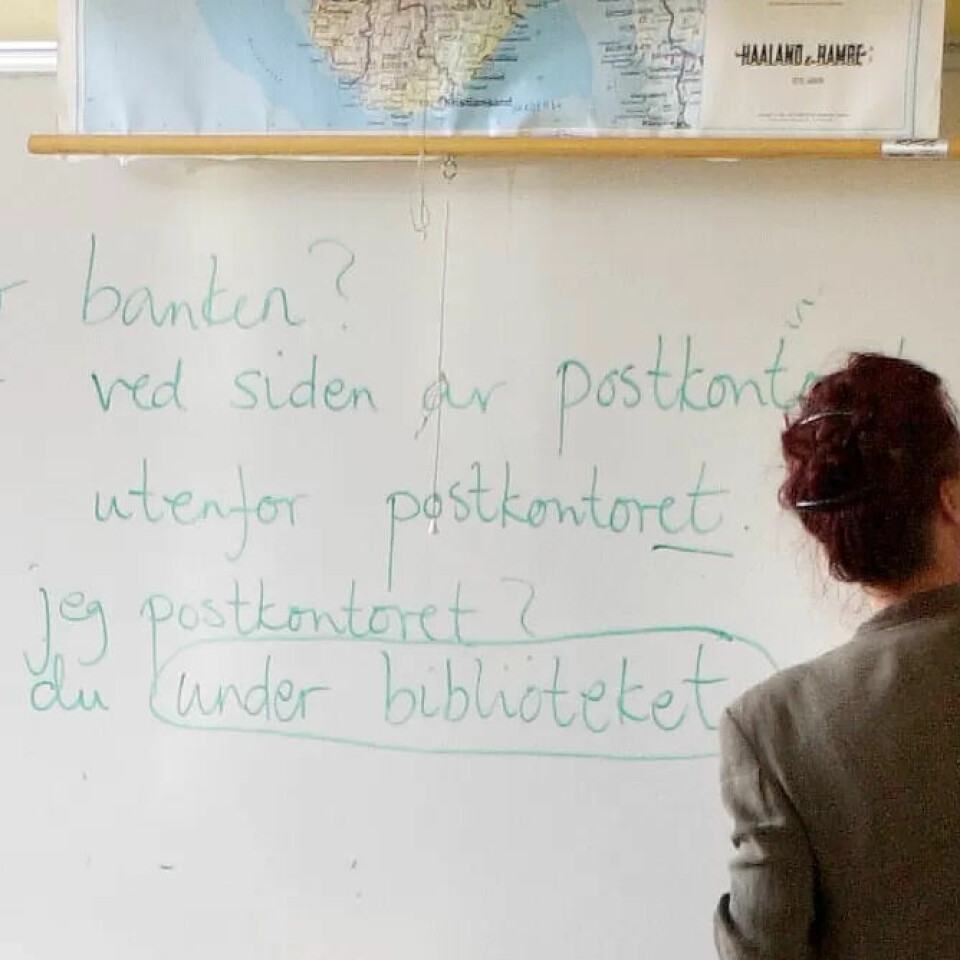 HAALAND & HAMRE
Christiansand
banken?
ved siden av postkont
utenfor postkontoret.
jeg postkontoret?
du under biblioteket